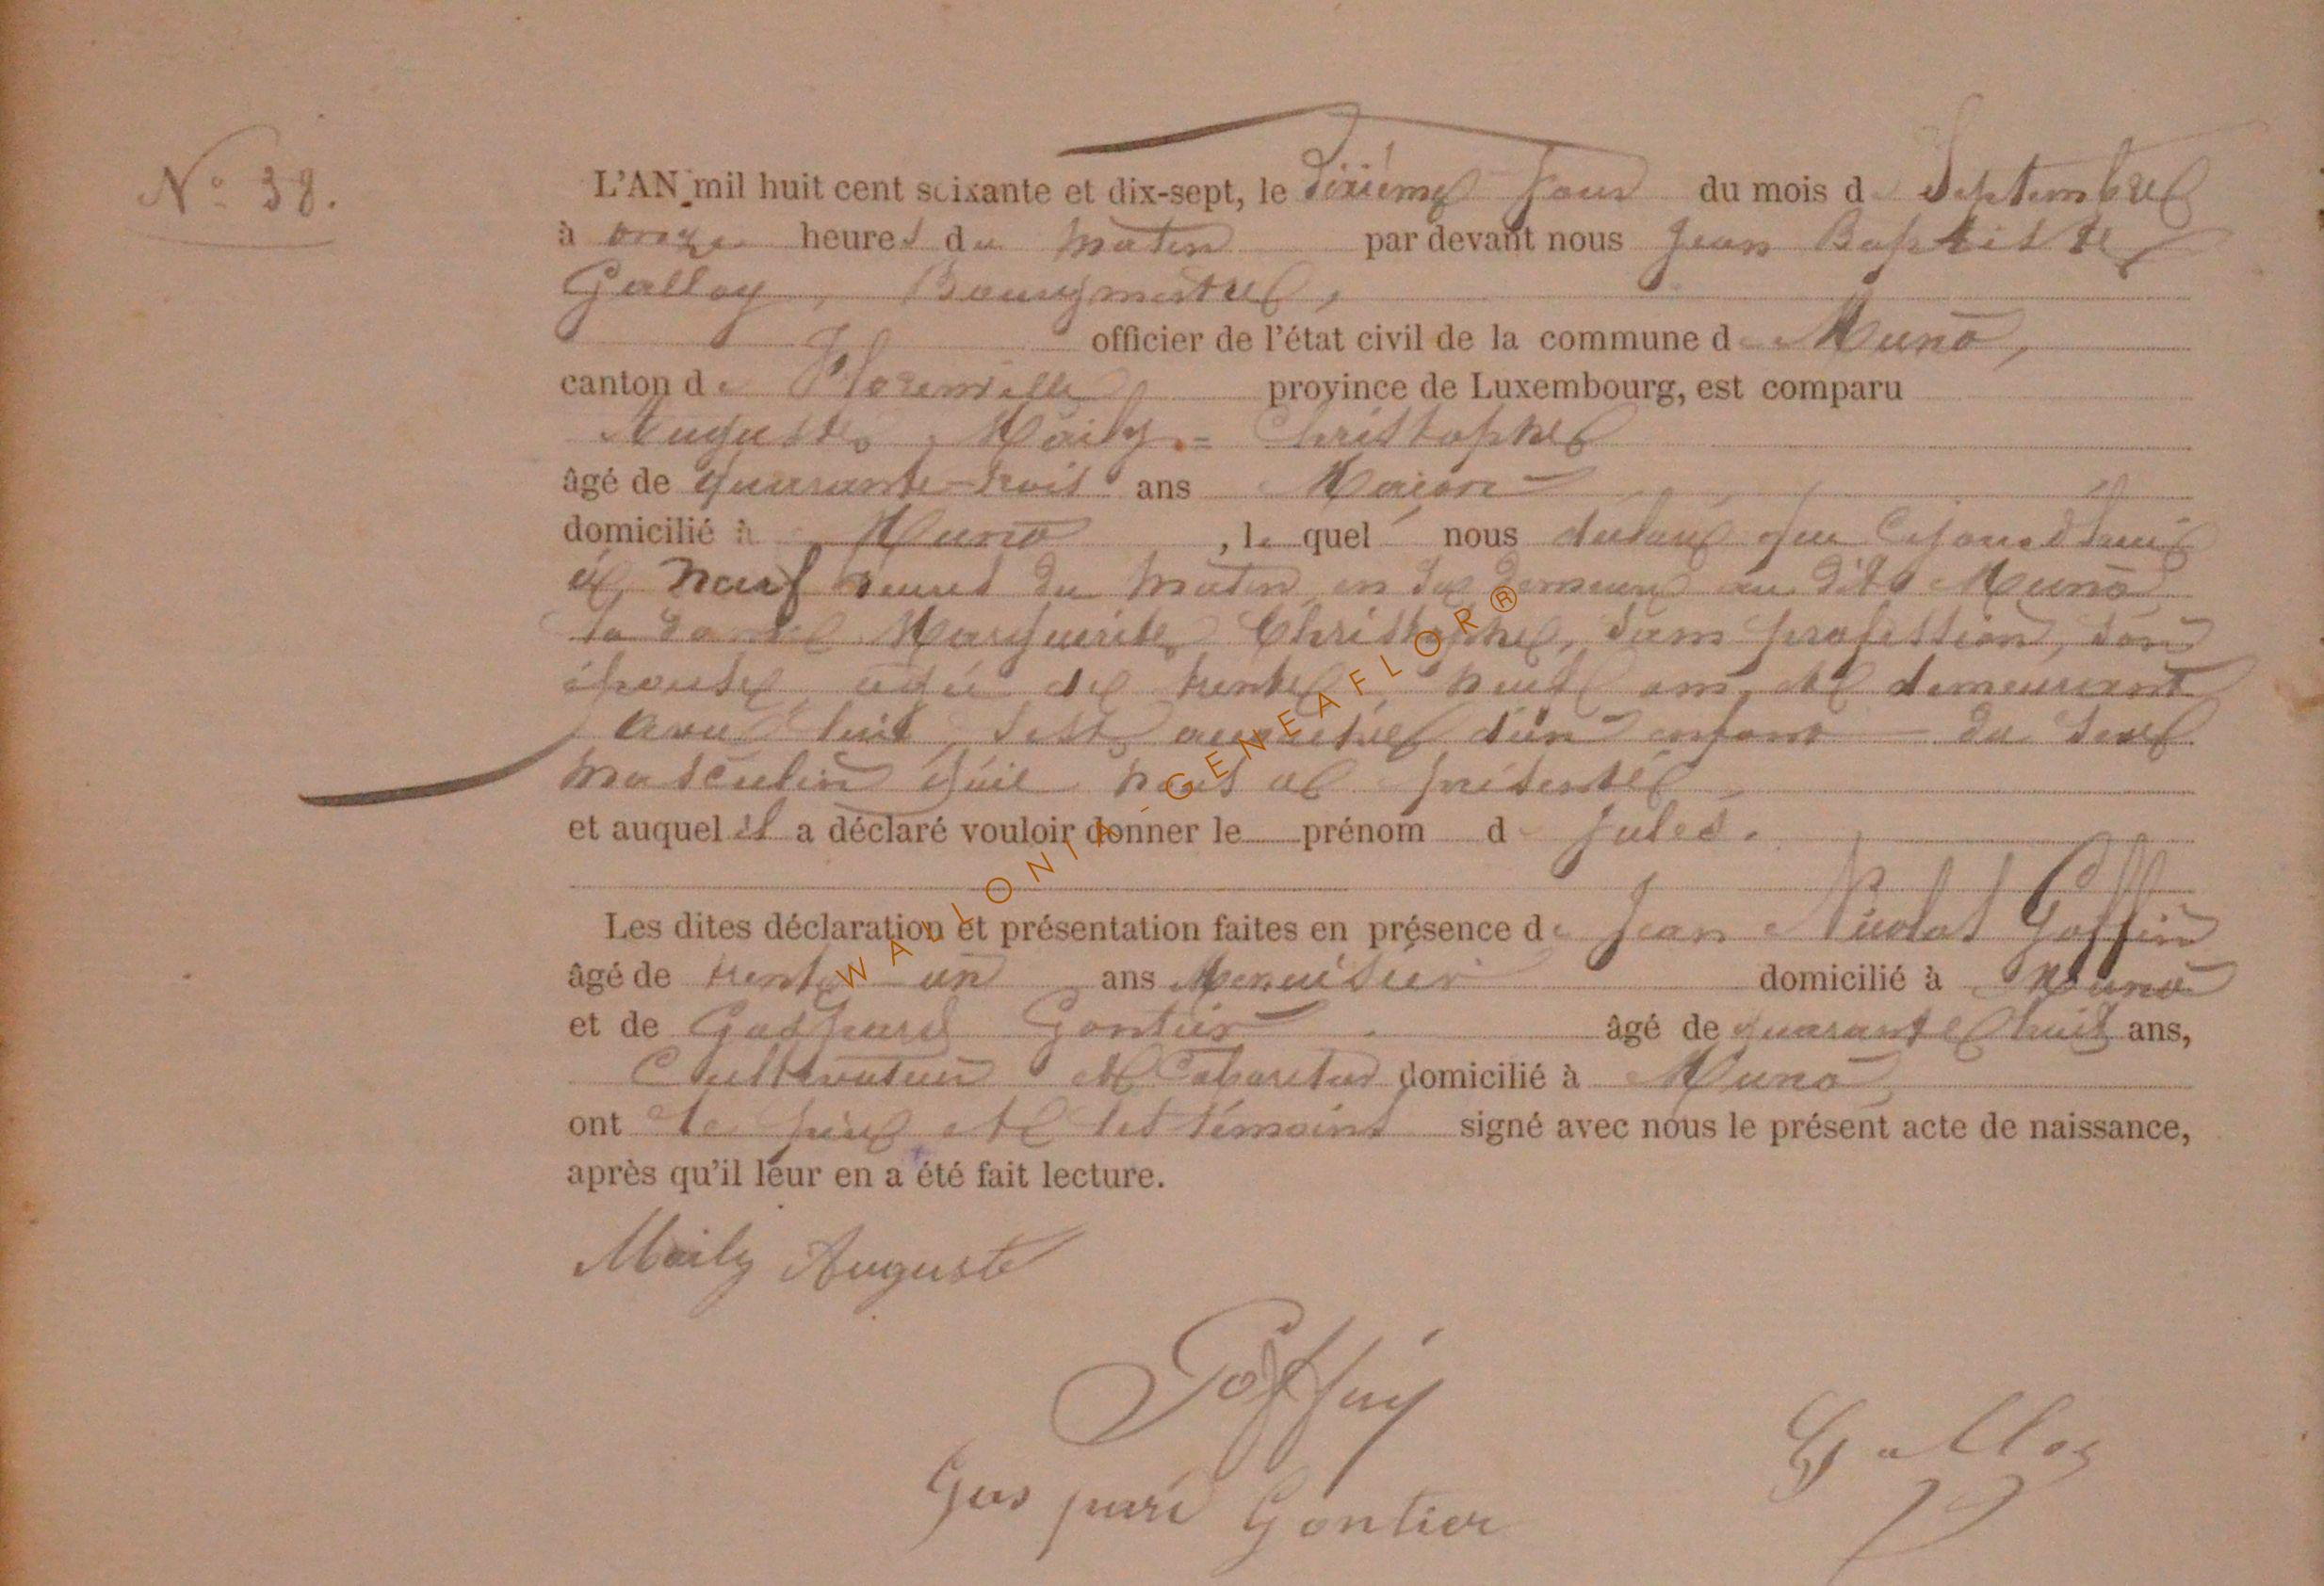 N° 38.
L'AN mil huit cent soixante et dix-sept, le dixième jour du mois de Septembre
à onze heures du matin par devant nous Jean Baptiste
Galloy, Bourgmestre,
officier de l'état civil de la commune de Muno,
canton de Florenville province de Luxembourg, est comparu
Auguste Maily = Christophe
âgé de quarante-trois ans Maçon
domicilié à Muno, le quel nous déclare que cejourd'hui
à neuf heures du matin en sa demeure au dit Muno
la dame Marguerite Christophe, sans profession, son
épouse, agée de trente huit ans, et demeurant
avec lui, s'est accouchée d'un enfant du sexe
masculin qu'il nous a présenté
et auquel il a déclaré vouloir donner le prénom de Jules.
Les dites déclaration et présentation faites en présence de Jean Nicolas Goffin
âgé de trente un ans Menuisier domicilié à Muno
et de Gaspard Gontier âgé de quarante huit ans,
Cultivateur et Cabaretier domicilié à Muno
ont le père et les témoins signé avec nous le présent acte de naissance,
après qu'il leur en a été fait lecture.
Maily Auguste
Goffin
Gaspard Gontier
Galloy
WALLONIA-GENEAFLOR®